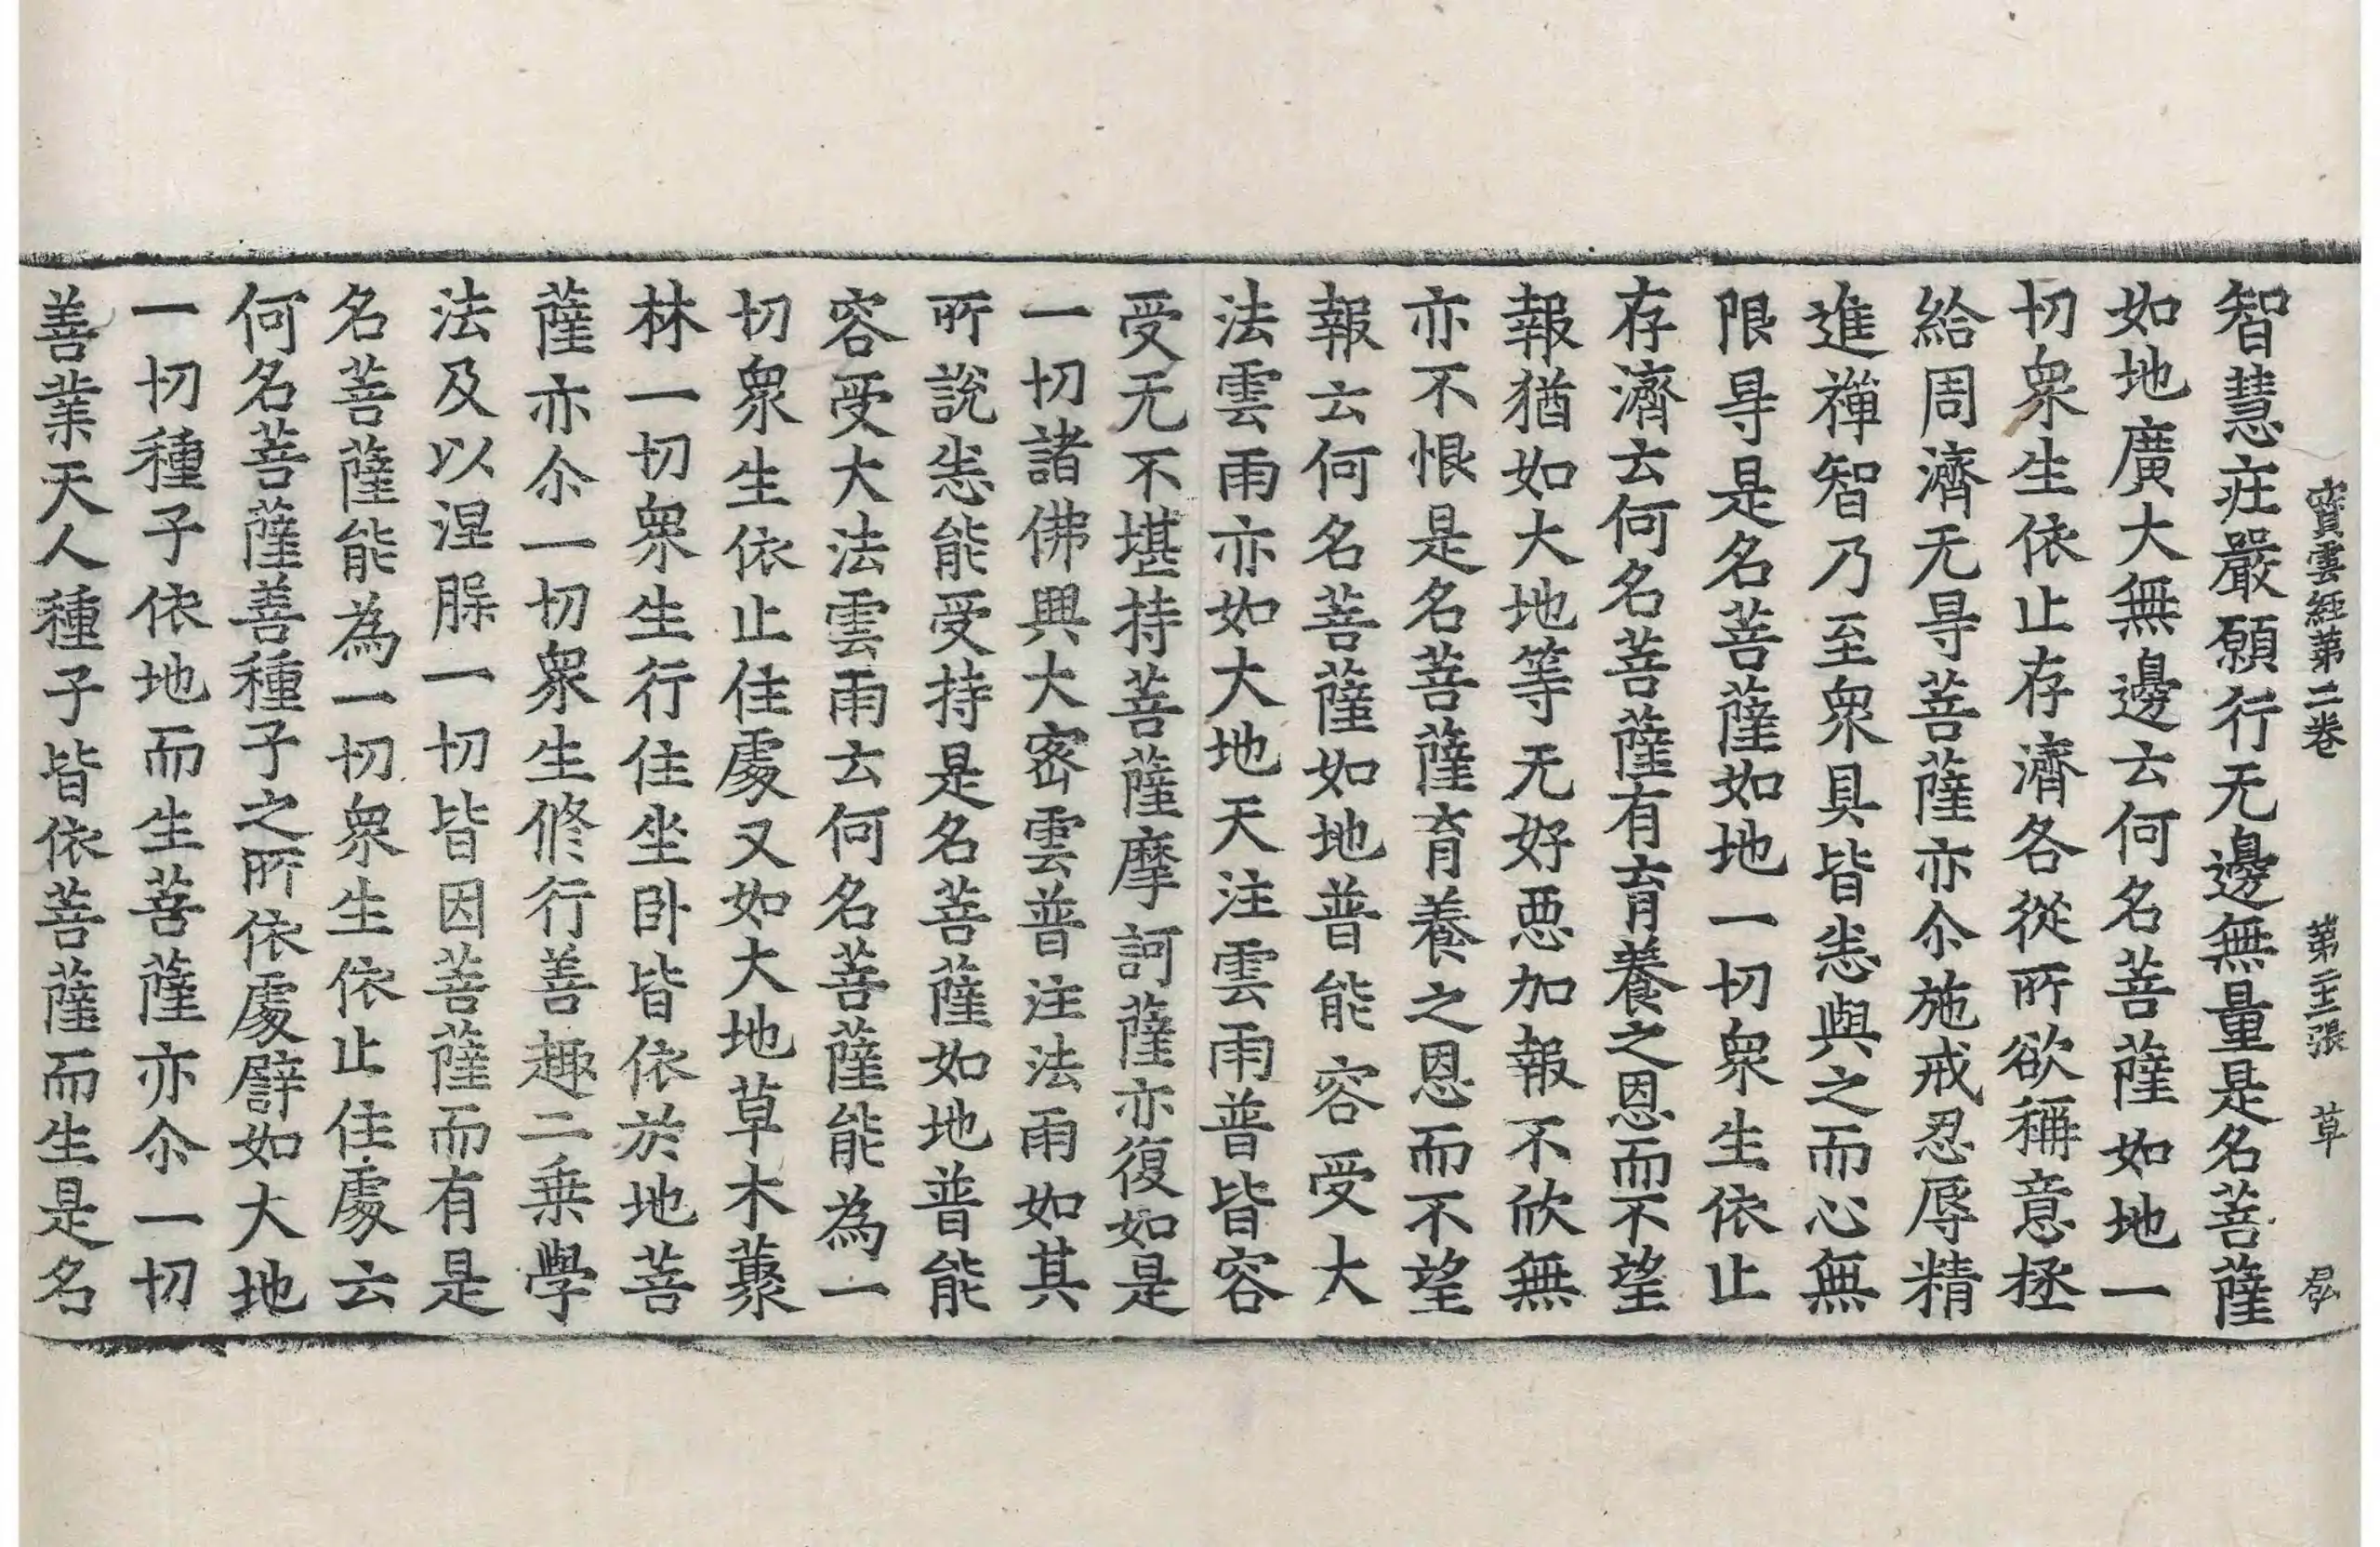 寶雲經第二卷 第二十三張 草 㢸
智慧庄嚴願行无邊無量是名菩薩
如地廣大無邊云何名菩薩如地一
切衆生依止存濟各從所欲稱意拯
給周濟无㝵菩薩亦尒施戒忍辱精
進禪智乃至衆具皆悉與之而心無
限㝵是名菩薩如地一切衆生依止
存濟云何名菩薩有育養之恩而不望
報猶如大地等无好惡加報不欣無
亦不恨是名菩薩育養之恩而不望
報云何名菩薩如地普能容受大
法雲雨亦如大地天注雲雨普皆容
受无不堪持菩薩摩訶薩亦復如是
一切諸佛興大密雲普注法雨如其
所說悉能受持是名菩薩如地普能
容受大法雲雨云何名菩薩能為一
切衆生依止住處又如大地草木藂
林一切衆生行住坐臥皆依於地菩
薩亦尒一切衆生修行善趣二乗學
法及以涅槃一切皆因菩薩而有是
名菩薩能為一切衆生依止住處云
何名菩薩善種子之所依處譬如大地
一切種子依地而生菩薩亦尒一切
善業天人種子皆依菩薩而生是名